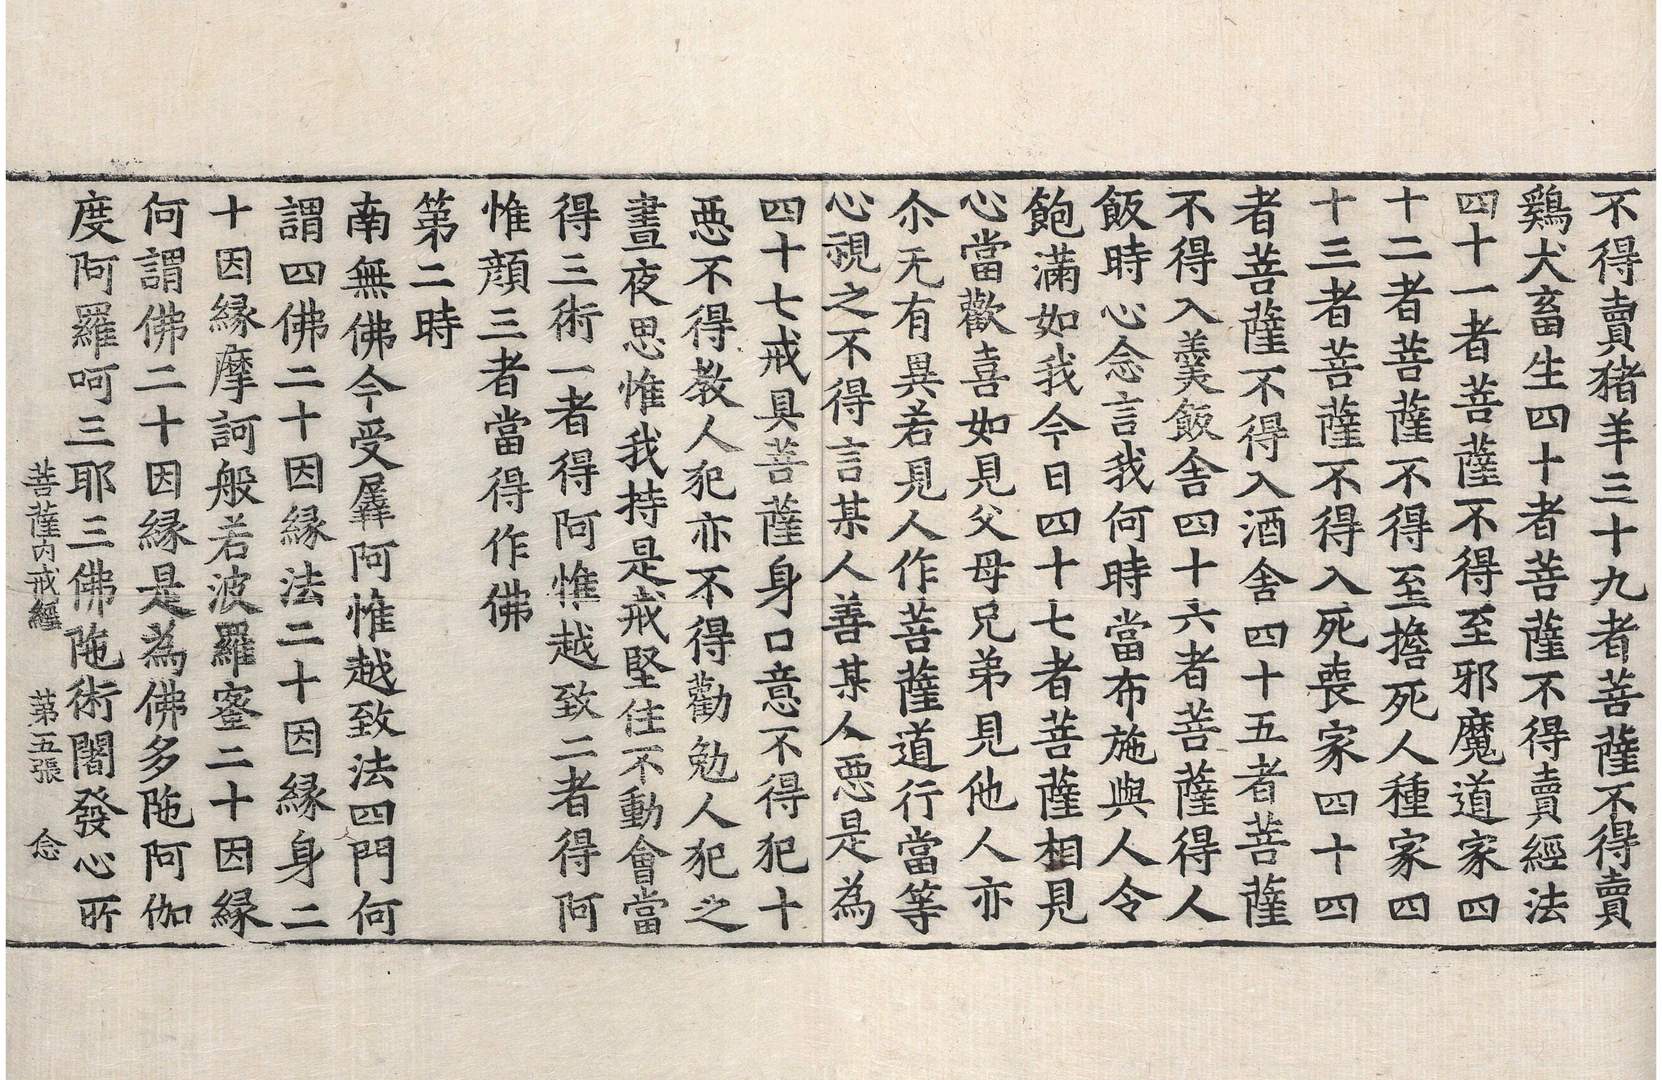 不得賣猪羊三十九者菩薩不得賣
鷄犬畜生四十者菩薩不得賣經法
四十一者菩薩不得至邪魔道家四
十二者菩薩不得至擔死人種家四
十三者菩薩不得入死喪家四十四
者菩薩不得入酒舍四十五者菩薩
不得入羹飯舍四十六者菩薩得人
飯時心念言我何時當布施與人令
飽滿如我今日四十七者菩薩相見
心當歡喜如見父母兄弟見他人亦
尒无有異若見人作菩薩道行當等
心視之不得言某人善某人惡是為
四十七戒具菩薩身口意不得犯十
惡不得教人犯亦不得勸勉人犯之
晝夜思惟我持是戒堅住不動會當
得三術一者得阿惟越致二者得阿
惟顔三者當得作佛
第二時
南無佛今受羼阿惟越致法四門何
謂四佛二十因緣法二十因緣身二
十因緣摩訶般若波羅蜜二十因緣
何謂佛二十因緣是為佛多陁阿伽
度阿羅呵三耶三佛陁術闍發心所
菩薩內戒經 第五張 念